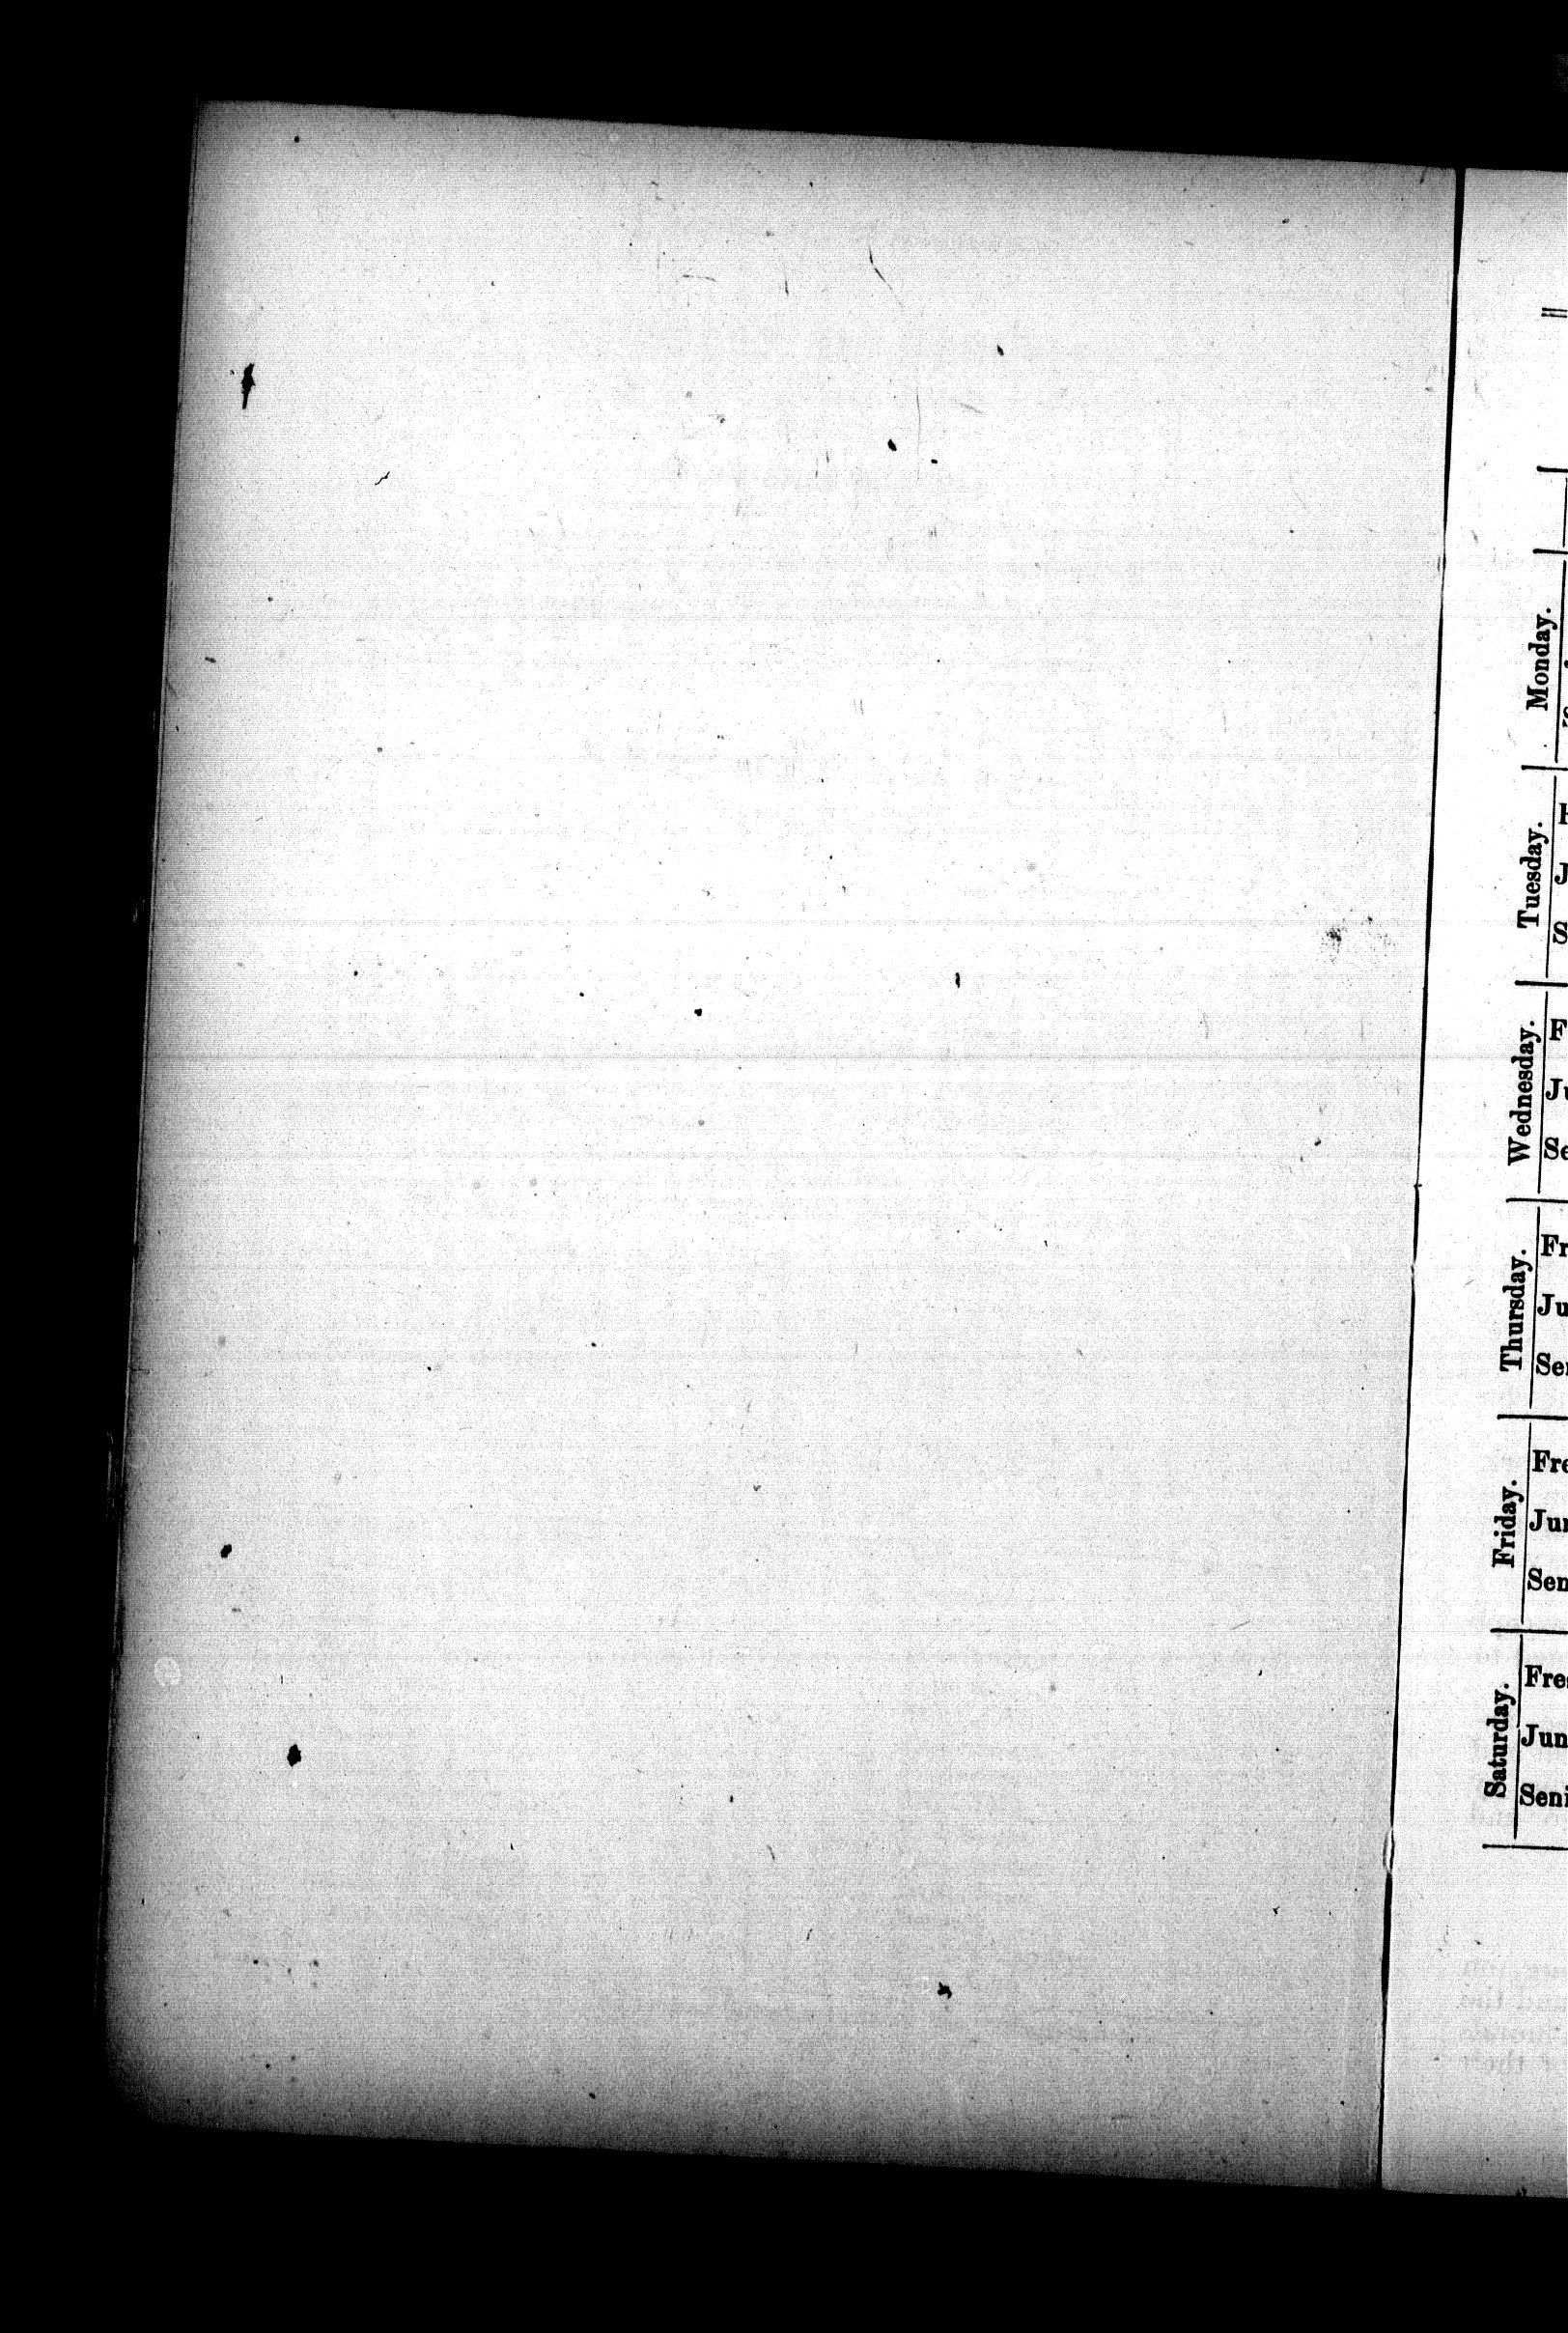 Monday.
Tuesday.
J
S
Wednesday.
F
Ju
Se
Thursday.
Fr
Ju
Sen
Friday.
Fre
Jun
Sen
Saturday.
Fres
Jun
Seni